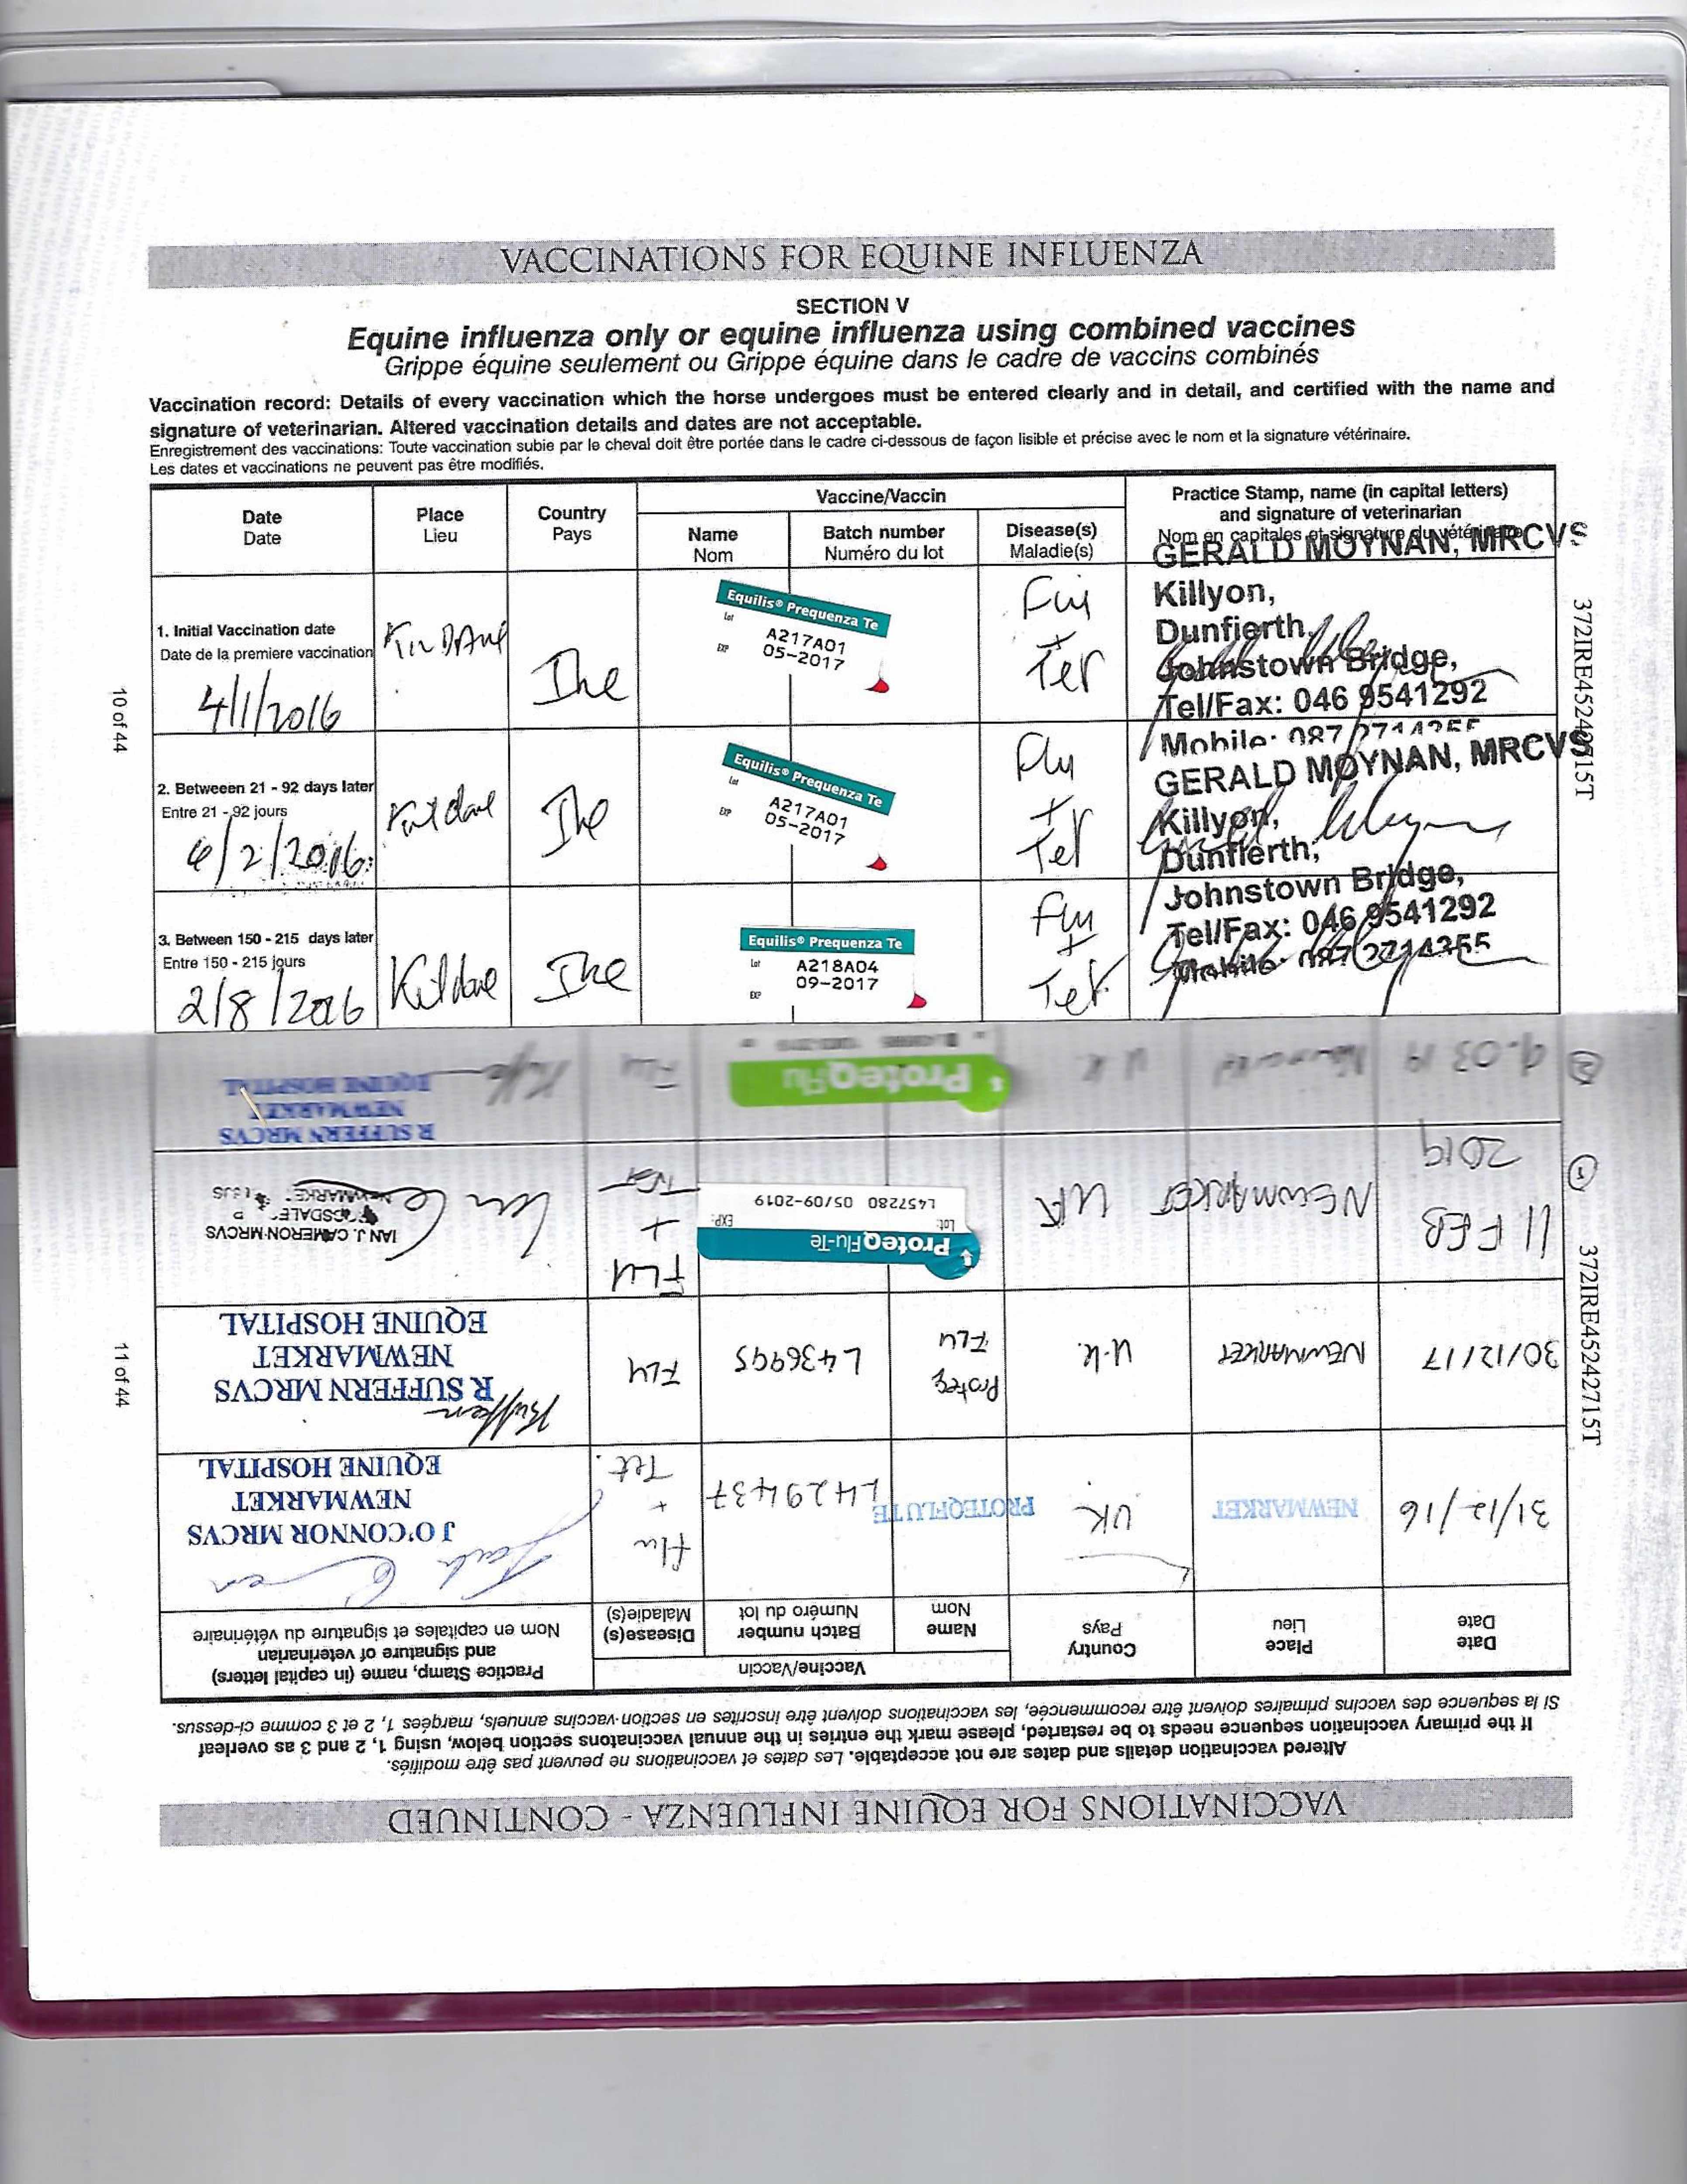 VACCINATIONS FOR EQUINE INFLUENZA
SECTION V
Equine influenza only or equine influenza using combined vaccines
Grippe équine seulement ou Grippe équine dans le cadre de vaccins combinés
Vaccination record: Details of every vaccination which the horse undergoes must be entered clearly and in detail, and certified with the name and
signature of veterinarian. Altered vaccination details and dates are not acceptable.
Enregistrement des vaccinations: Toute vaccination subie par le cheval doit être portée dans le cadre ci-dessous de façon lisible et précise avec le nom et la signature vétérinaire.
Les dates et vaccinations ne peuvent pas être modifiés.
Date
Date
Place
Lieu
Country
Pays
Vaccine/Vaccin
Name
Nom
Batch number
Numéro du lot
Disease(s)
Maladie(s)
Practice Stamp, name (in capital letters)
and signature of veterinarian
Nom en capitales et signature du vétérinaire
1. Initial Vaccination date
Date de la premiere vaccination
4/1/2016
Ire
Equilis® Prequenza Te
Lot
A217A01
EXP
05-2017
Flu
+
Tet
GERALD MOYNAN, MRCVS
Killyon,
Dunfierth,
Johnstown Bridge,
Tel/Fax: 046 9541292
Mobile: 087 2714355
2. Betweeen 21 - 92 days later
Entre 21 - 92 jours
/2/2016
Kildare
Ire
Equilis® Prequenza Te
Lot
A217A01
EXP
05-2017
Flu
+
Tet
GERALD MOYNAN, MRCVS
Killyon,
Dunfierth,
Johnstown Bridge,
Tel/Fax: 046 9541292
Mobile: 087 2714355
3. Between 150 - 215 days later
Entre 150 - 215 jours
2/8/2016
Kildare
Ire
Equilis® Prequenza Te
Lot
A218A04
EXP
09-2017
Flu
+
Tet
10 of 44
372IRE45242715T
VACCINATIONS FOR EQUINE INFLUENZA - CONTINUED
Altered vaccination details and dates are not acceptable. Les dates et vaccinations ne peuvent pas être modifiés.
If the primary vaccination sequence needs to be restarted, please mark the entries in the annual vaccinatons section below, using 1, 2 and 3 as overleaf
Si la sequence des vaccins primaires doivent être recommencée, les vaccinations doivent être inscrites en section-vaccins annuels, marqées 1, 2 et 3 comme ci-dessus.
Date
Date
Place
Lieu
Country
Pays
Vaccine/Vaccin
Name
Nom
Batch number
Numéro du lot
Disease(s)
Maladie(s)
Practice Stamp, name (in capital letters)
and signature of veterinarian
Nom en capitales et signature du vétérinaire
31/12/16
NEWMARKET
UK
PROTEQFLUTE
L429437
Flu
+
Tet.
J O'CONNOR MRCVS
NEWMARKET
EQUINE HOSPITAL
30/12/17
NEWMARKET
U.K.
Proteq
FLU
L436995
FLU
R SUFFERN MRCVS
NEWMARKET
EQUINE HOSPITAL
1
11 FEB
2019
NEWMARKET
UK
ProteqFlu-Te
Lot:
EXP:
L457280 05/09-2019
FLU
+
Tet
IAN J. CAMERON MRCVS
NEWMARKET
2
9.03 19
Newmarket
U.K
ProteqFlu
Flu
R SUFFERN MRCVS
NEWMARKET
EQUINE HOSPITAL
11 of 44
372IRE45242715T